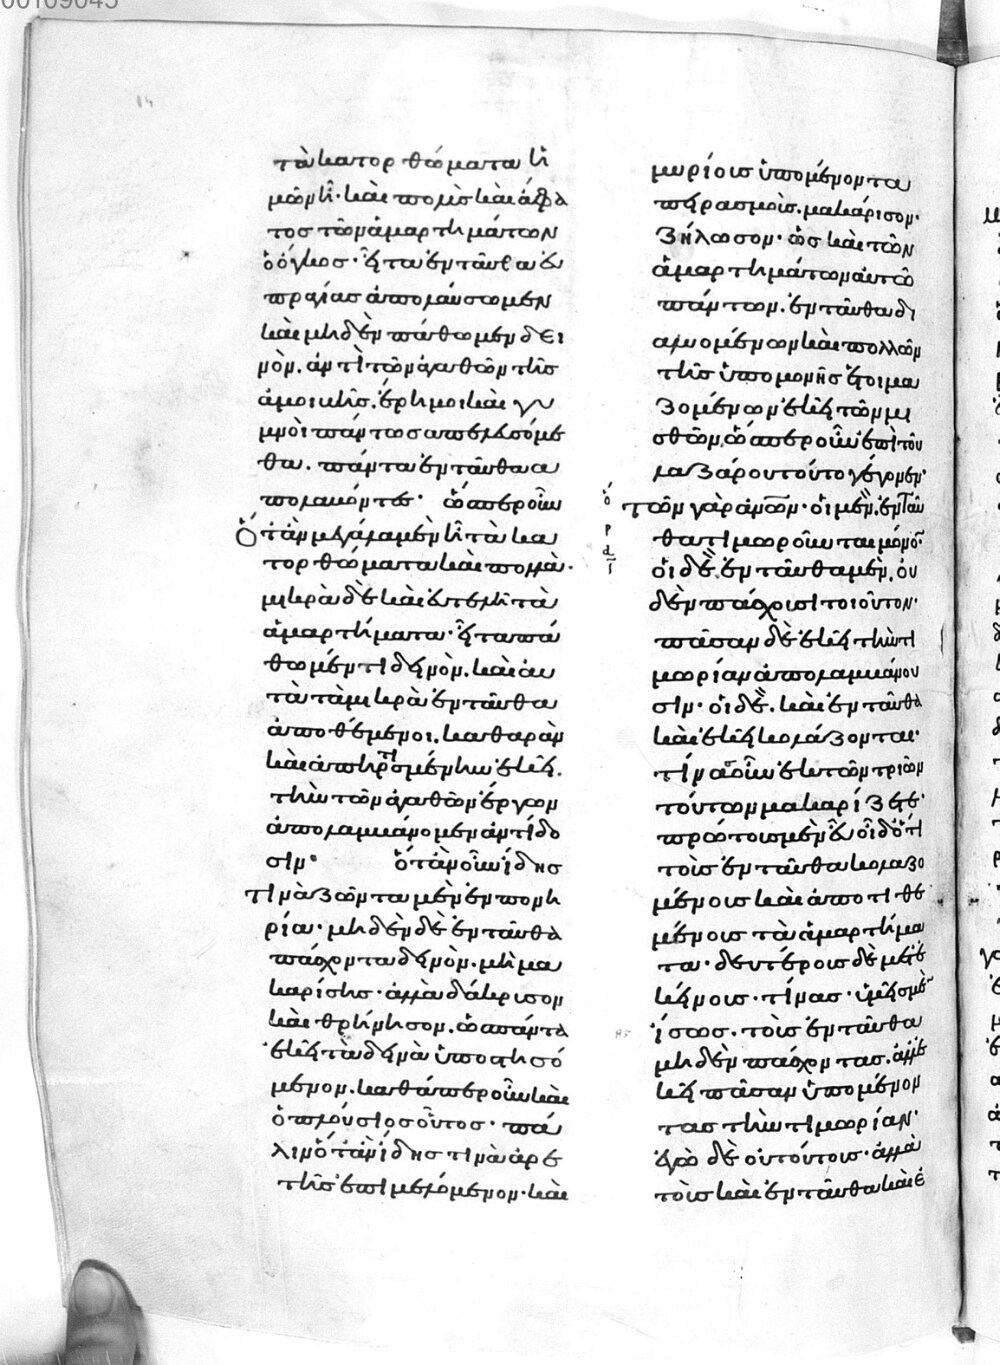 τὰ κατορθώματα ἦ
μῶν ἦ· καὶ πολὺς καὶ ἄφα
τος τῶν ἁμαρτημάτων
ὁ ὄγκος· εἶτα ἐνταῦθα εὐ
πραγίας ἀπολαύσωμεν
καὶ μηδὲν πάθωμεν δει
νὸν. ἀντὶ τῶν ἀγαθῶν τῆς
ἀμοιβῆς. ἔρημοι καὶ γυ
μνοὶ πάντως ἀπελευσόμε
θα. πάντα ἐνταῦθα ἀ
πολαβόντες· ὥσπερ οὖν
ὅταν μεγάλα μὲν ἦ τὰ κα
τορθώματα καὶ πολλὰ·
μικρὰ δὲ καὶ εὐτελῆ τὰ
ἁμαρτήματα· εἶτα πά
θωμέν τι δεινὸν. καὶ αὐ
τὰ τὰ μικρὰ ἐνταῦθα
ἀποθέμενοι. καθαρὰν
καὶ ἀπηρτισμένην ἐκεῖ.
τὴν τῶν ἀγαθῶν ἔργων
ἀπολαμβάνομεν ἀντίδο
σιν· ὅταν οὖν ἴδης
τινὰ ζῶντα μὲν ἐν πονη
ρία· μηδὲν δὲ ἐνταῦθα
πάσχοντα δεινὸν. μὴ μα
καρίσης· ἀλλὰ δάκρυσον
καὶ θρήνησον. ὡς πάντα
ἐκεῖ τὰ δεινὰ ὑποστησό
μενον. καθάπερ οὖν καὶ
ὁ πλούσιος οὗτος· πά
λιν ὅταν ἴδης τινὰ ἀρε
τῆς ἐπιμελόμενον· καὶ
μυρίοις ὑπομένοντα
πειρασμοῖς. μακάρισον·
ζήλωσον· ὡς καὶ τῶν
ἁμαρτημάτων αὐτῶ
πάντων. ἐνταῦθα δι
αλυομένων καὶ πολλῶν
τῆς ὑπομονῆς ἑτοιμα
ζομένων ἐκεῖ τῶν μι
σθῶν, ὥσπερ οὖν ἐπὶ τοῦ
λαζάρου τοῦτο γέγονεν·
τῶν γὰρ ἀνων· οἱ μὲν. ἐνταῦ
θα τιμωροῦνται μόνον·
οἱ δὲ. ἐνταῦθα μὲν, οὐ
δὲν πάσχουσι τοιοῦτον·
πᾶσαν δὲ ἐκεῖ τὴν τι
μωρίαν ἀπολαμβάνου
σιν· οἱ δὲ. καὶ ἐνταῦθα
καὶ ἐκεῖ κολάζονται·
τίνας οὖν ἐκ τῶν τριῶν
τούτων μακαρίζεις·
πρώτους μὲν εὖ οἶδ ὅτι
τοὺς ἐνταῦθα κολαζο
μένους καὶ ἀποτιθε
μένους τὰ ἁμαρτήμα
τα· δευτέρους δὲ μετ ἐ
κείνους· τίνας· ὑμεῖς μὲν
ἴσως. τοὺς ἐνταῦθα
μηδὲν πάσχοντας. ἀλλ ἐ
κεῖ πᾶσαν ὑπομένον
τας τὴν τιμωρίαν·
ἐγὼ δὲ οὐ τούτους· ἀλλὰ
τοὺς καὶ ἐνταῦθα καὶ ἐ